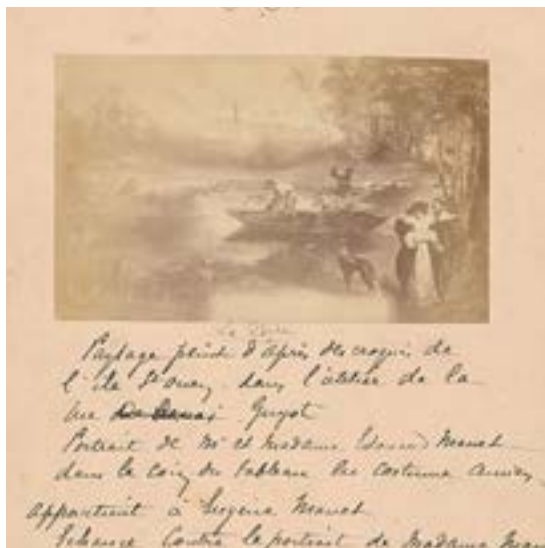 La Pêche
Paysage peint d'après des croquis de
l'île St Ouen dans l'atelier de la
rue Guyot
Portrait de Mr et Madame Edouard Manet
dans le coin du tableau en costume ancien
appartient à Eugène Manet
Echangé contre le portrait de Madame